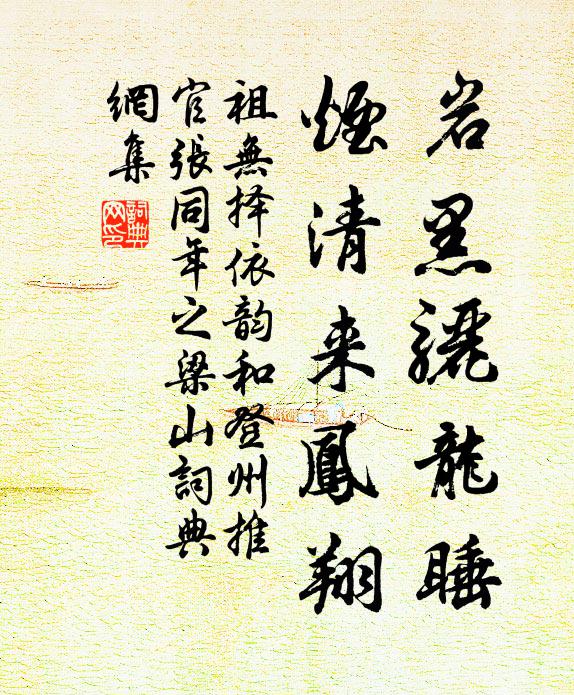 岩黑骊龍睡
煙清来鳳翔
祖無择依韵和登州推
官張同年之梁山詞典
網集
詞典網印